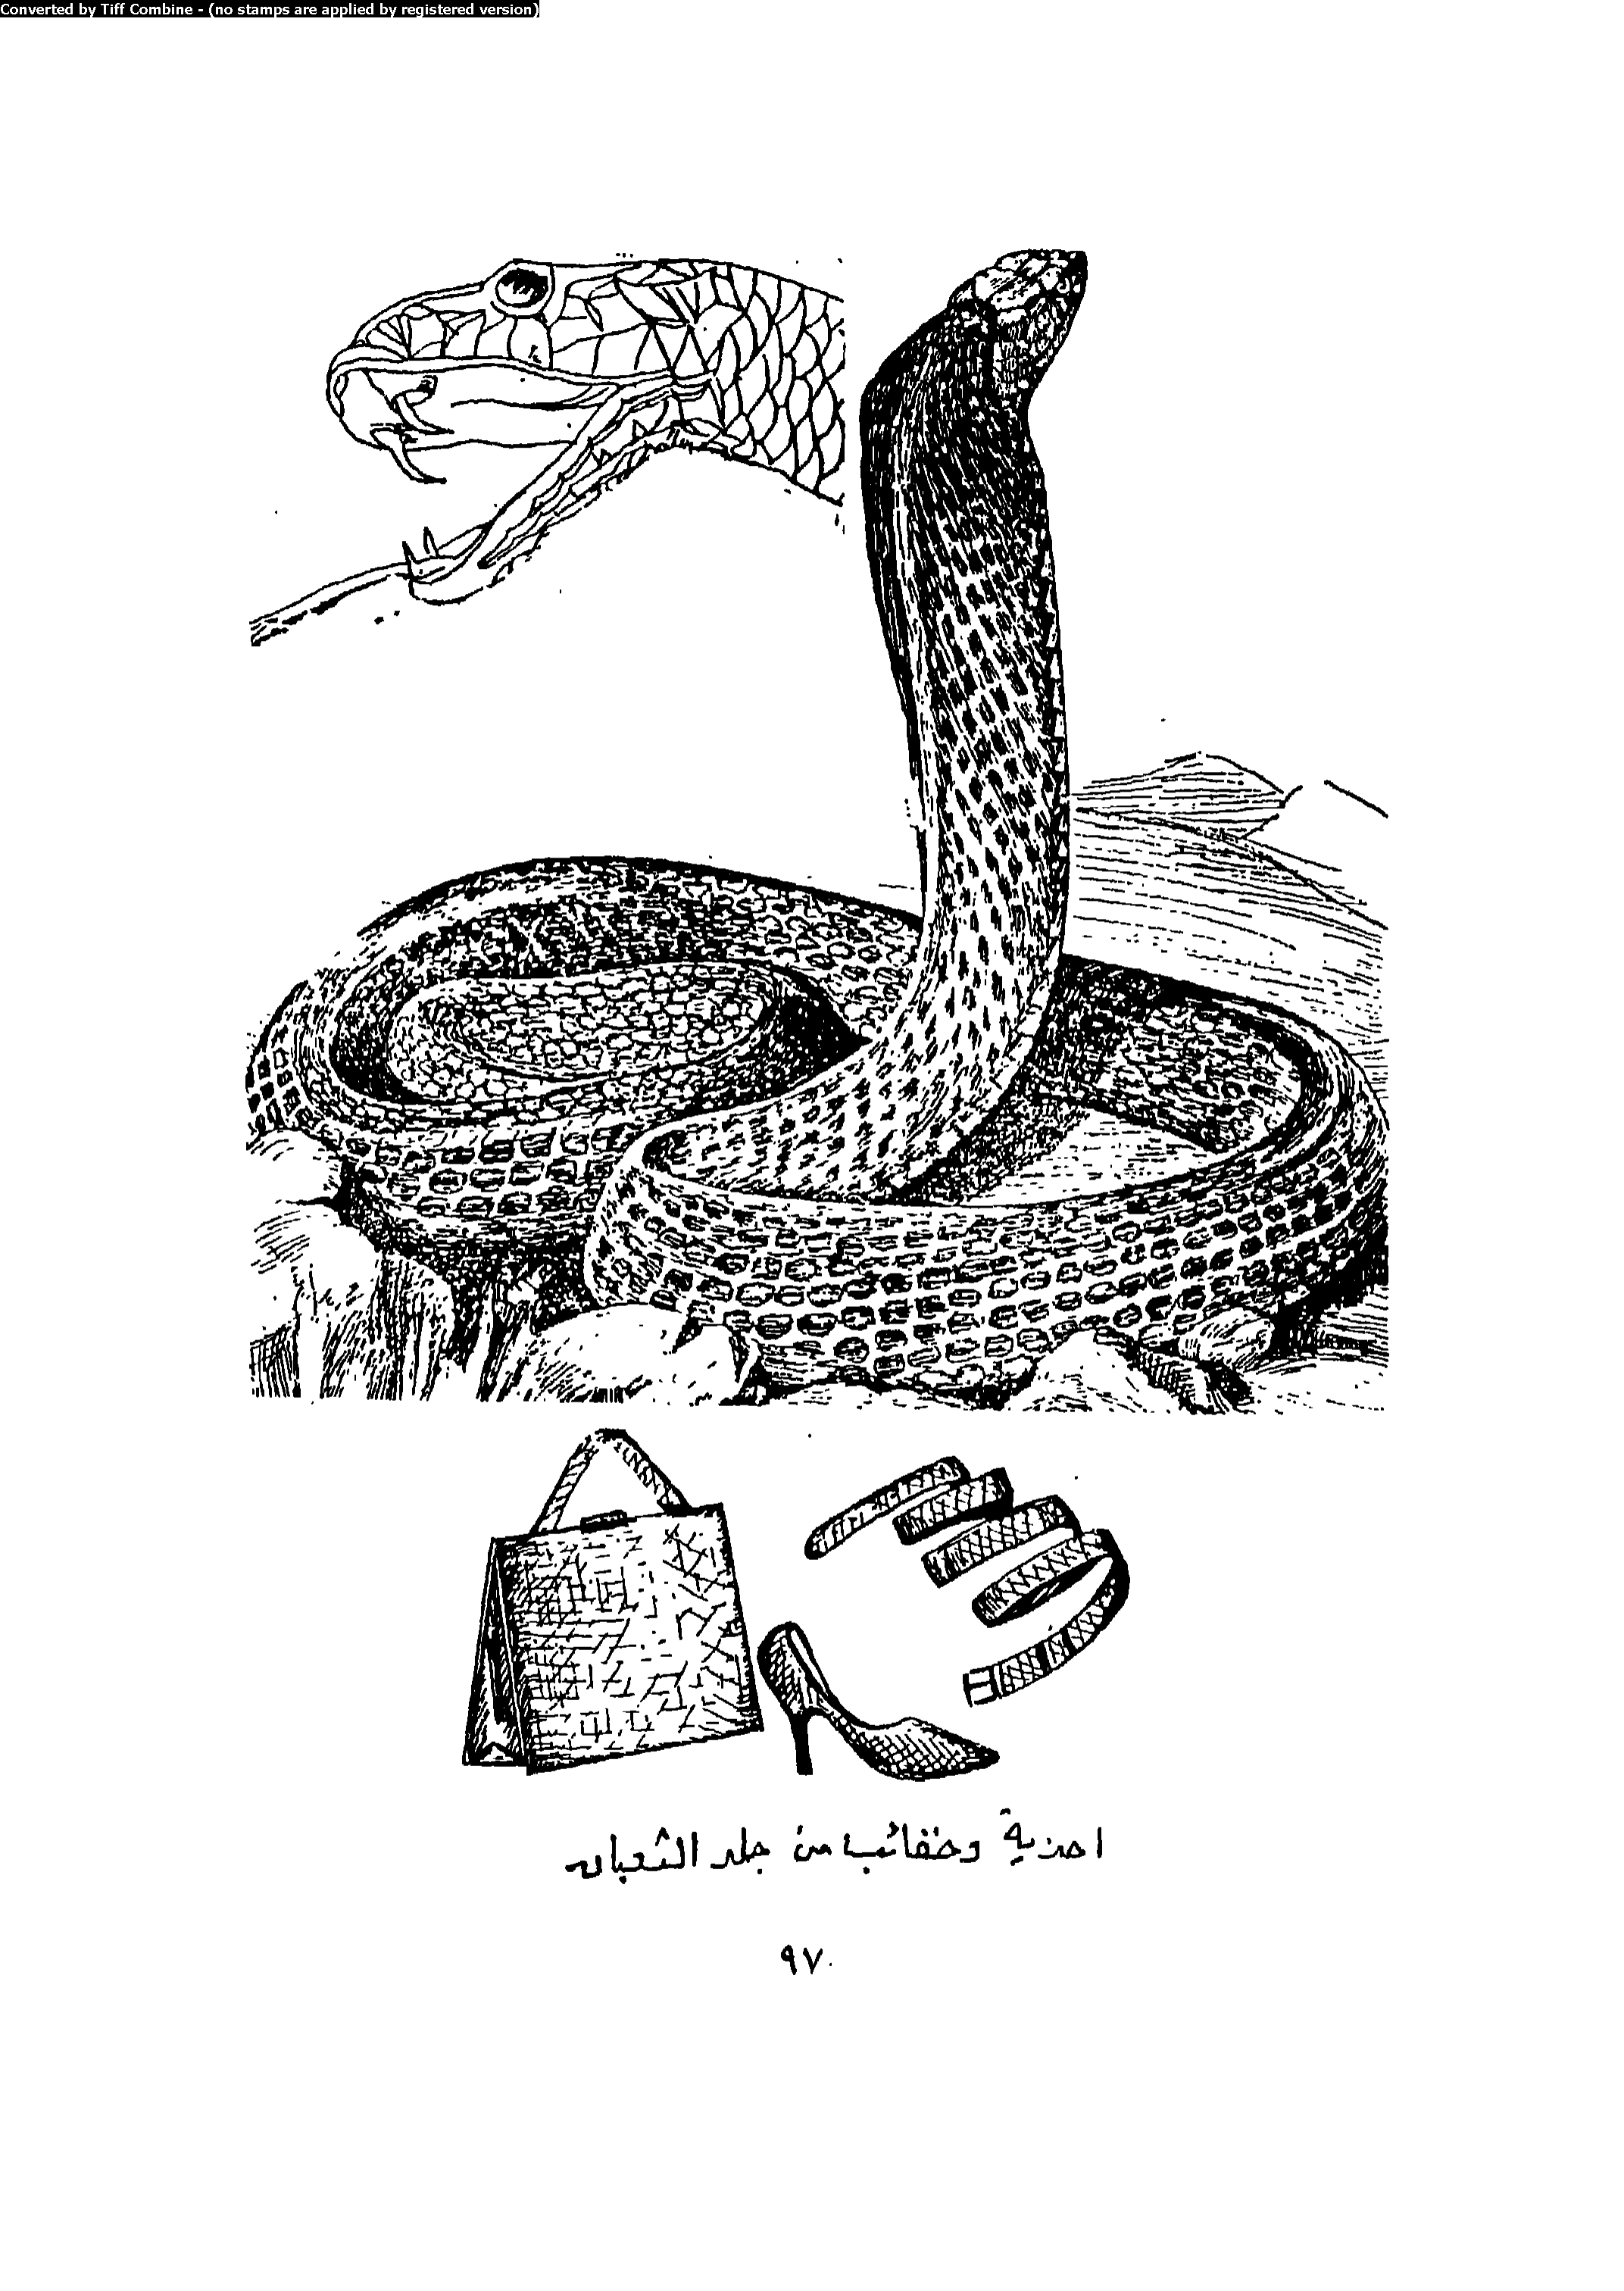 Converted by Tiff Combine - (no stamps are applied by registered version)
احذية وحقائب من جلد الثعبان
٩٧